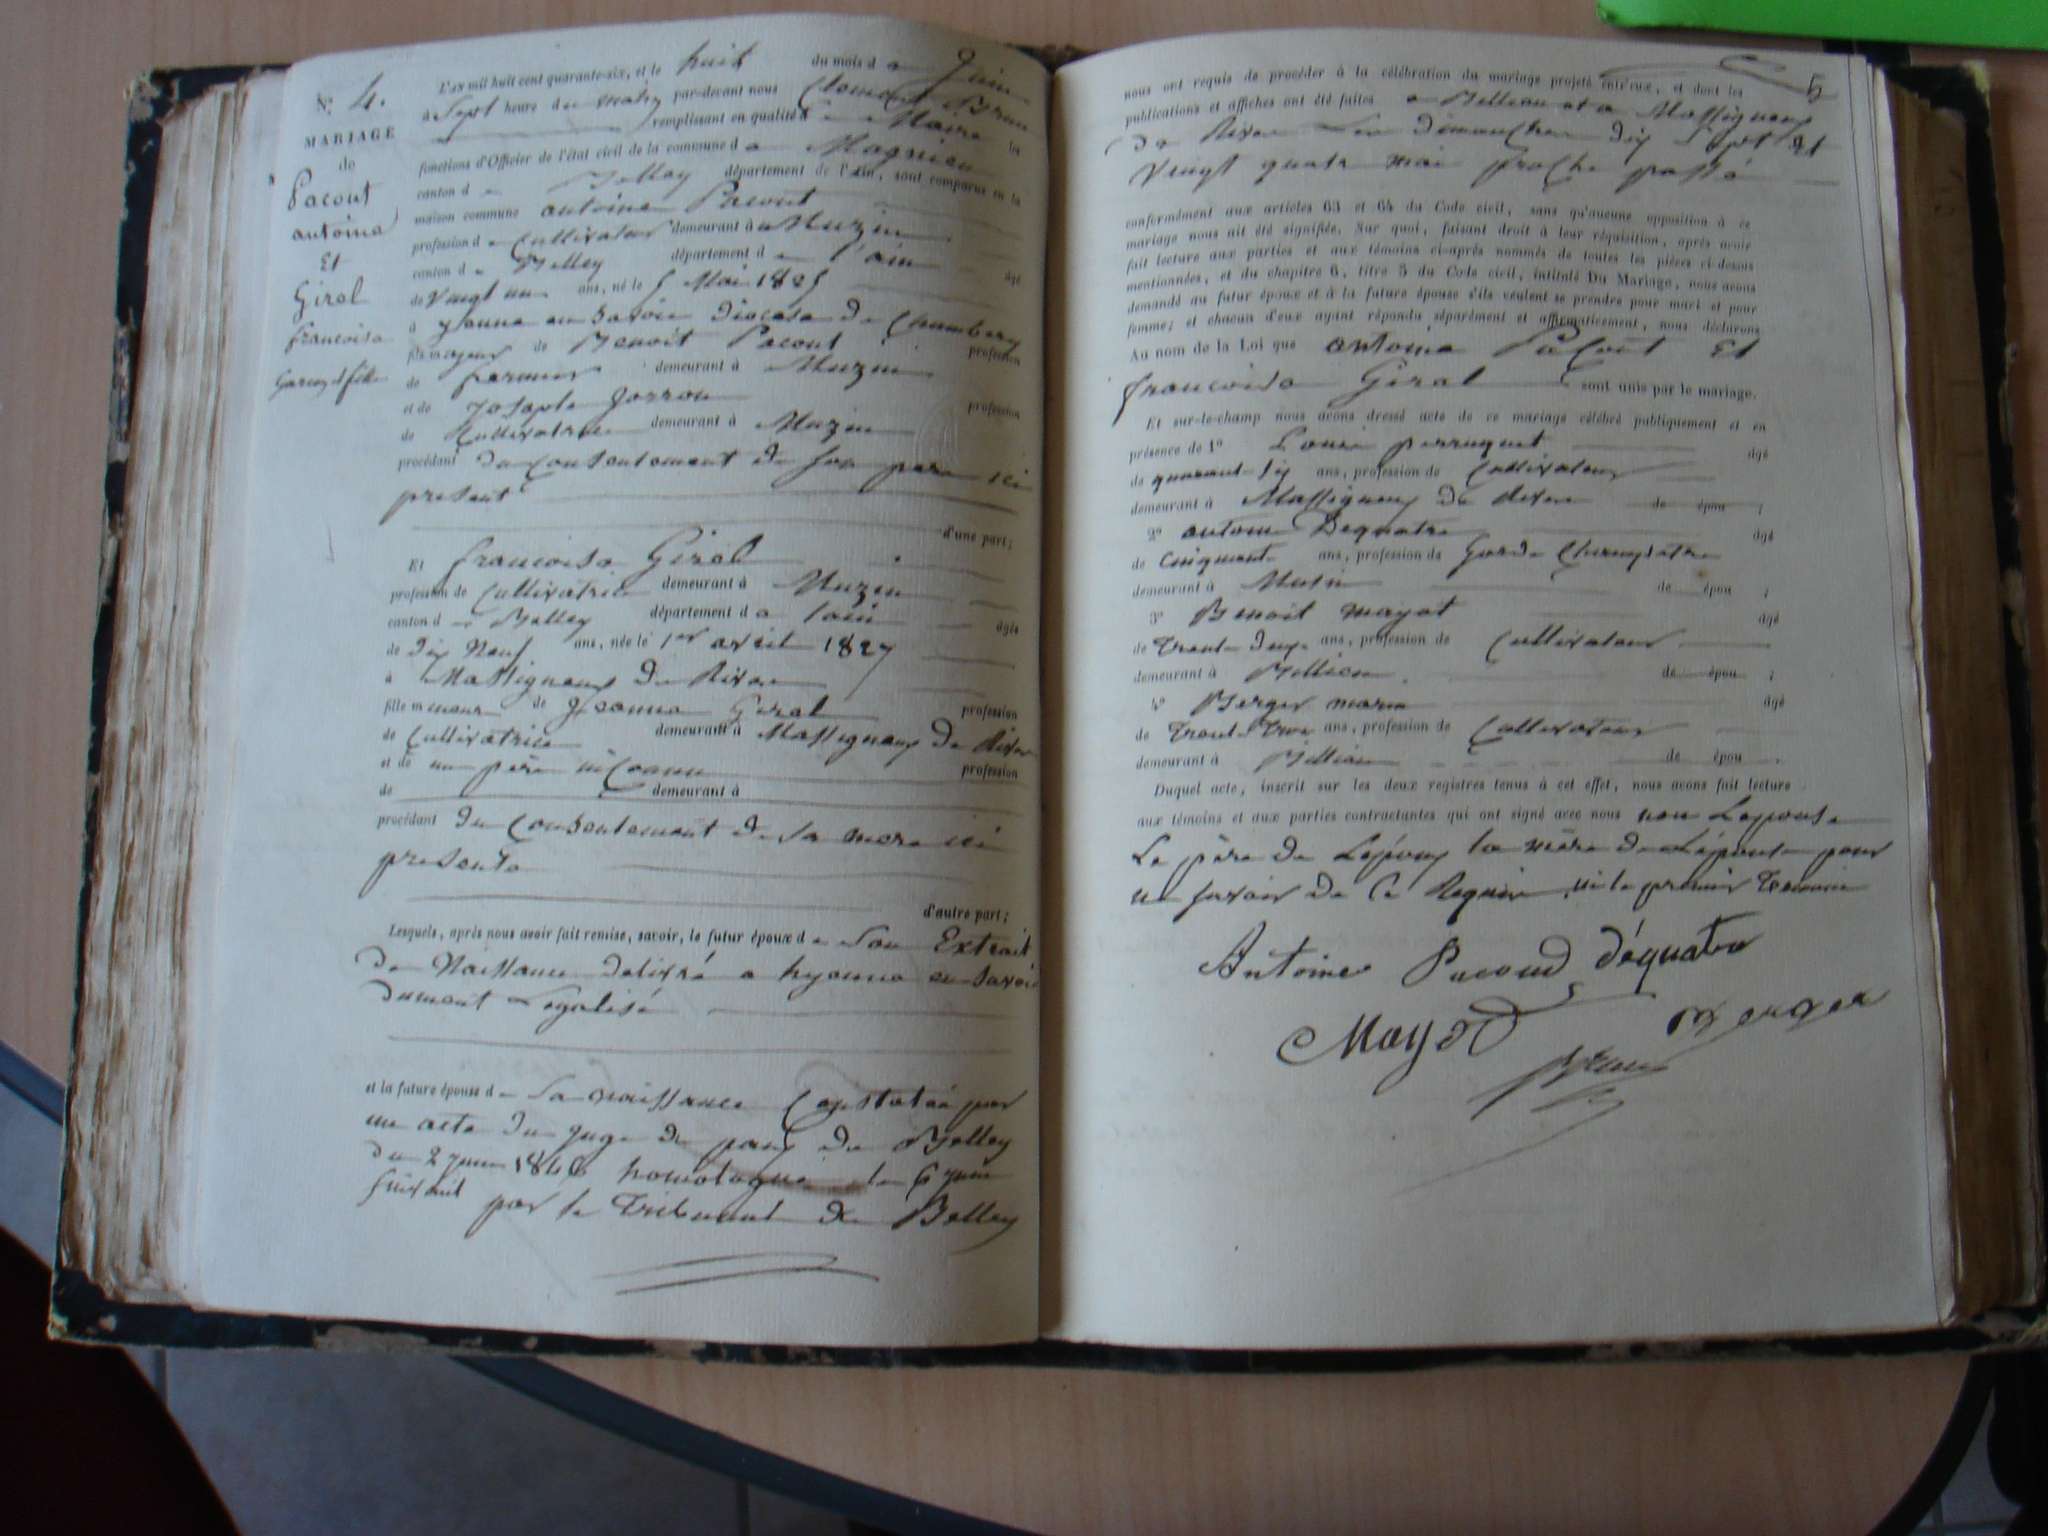 N.° 4.
MARIAGE
de
Pacout
antoine
Et
Giral
francoise
garcon & fille
L'AN mil huit cent quarante-six, et le huit du mois de Juin
à Sept heure du matin par-devant nous Clement Brun
remplissant en qualité de Maire les
fonctions d'Officier de l'état civil de la commune de Magnieu
canton de Belley département de l'AIN, sont comparus en la
maison commune antoine Pacout
profession de Cultivateur demeurant à Muzin
canton de Belley département de l'ain âgé
de vingt un ans, né le 5 Mai 1825
à yenne en Savoie diocese de Chambery
fils majeur de Benoit Pacout profession
de fermier demeurant à Muzin
et de Josephte Jorrou profession
de Cultivatrice demeurant à Muzin
procédant du Consentement de son pere ici
present
d'une part;
Et francoise Giral
profession de Cultivatrice demeurant à Muzin
canton de Belley département de l'ain âgée
de dix Neuf ans, née le 1er avril 1827
à Massigneux de Rives
fille mineure de Jeanne Giral profession
de Cultivatrice demeurant à Massigneux de Rives
et de un père inConnu profession
de demeurant à
procédant du Consentement de sa mere ici
presente
d'autre part;
Lesquels, après nous avoir fait remise, savoir, le futur époux de Son Extrait
de Naissance delivré a hyenne en Savoie
dument Legalisé
et la future épouse de sa naissance Constatée par
un acte du juge de paix de Belley
du 2 juin 1846 homologué le 6 juin
suivant par le Tribunal de Belley
5
nous ont requis de procéder à la célébration du mariage projeté entr'eux, et dont les
publications et affiches ont été faites a Billieu et a Massigneux
de Rives Les dimanches dix Sept et
Vingt quatre mai proche passé
conformément aux articles 63 et 64 du Code civil, sans qu'aucune opposition à ce
mariage nous ait été signifiée. Sur quoi, faisant droit à leur réquisition, après avoir
fait lecture aux parties et aux témoins ci-après nommés de toutes les pièces ci-dessus
mentionnées, et du chapitre 6, titre 5 du Code civil, intitulé Du Mariage, nous avons
demandé au futur époux et à la future épouse s'ils veulent se prendre pour mari et pour
femme; et chacun d'eux ayant répondu séparément et affirmativement, nous déclarons
Au nom de la Loi que antoine Pacout Et
francoise Giral sont unis par le mariage.
Et sur-le-champ nous avons dressé acte de ce mariage célébré publiquement et en
présence de 1° Louis perruquet âgé
de quarant six ans, profession de Cultivateur
demeurant à Massigneux de Rives de épou ;
2° antoine Dequatre âgé
de Cinquante ans, profession de Garde Champetre
demeurant à Musin de épou ;
3° Benoit mayot âgé
de Trent deux ans, profession de Cultivateur
demeurant à Billieu de épou ;
4° Berger marin âgé
de Trent Trois ans, profession de Cultivateur
demeurant à Billieu de épou .
Duquel acte, inscrit sur les deux registres tenus à cet effet, nous avons fait lecture
aux témoins et aux parties contractantes qui ont signé avec nous non Lepouse
Le père de Lépoux la mère de Lépouse pour
ne savoir de Ce Requis ni le premier Temoin
Antoine Pacoud déquatre
Mayot Berger
Brun